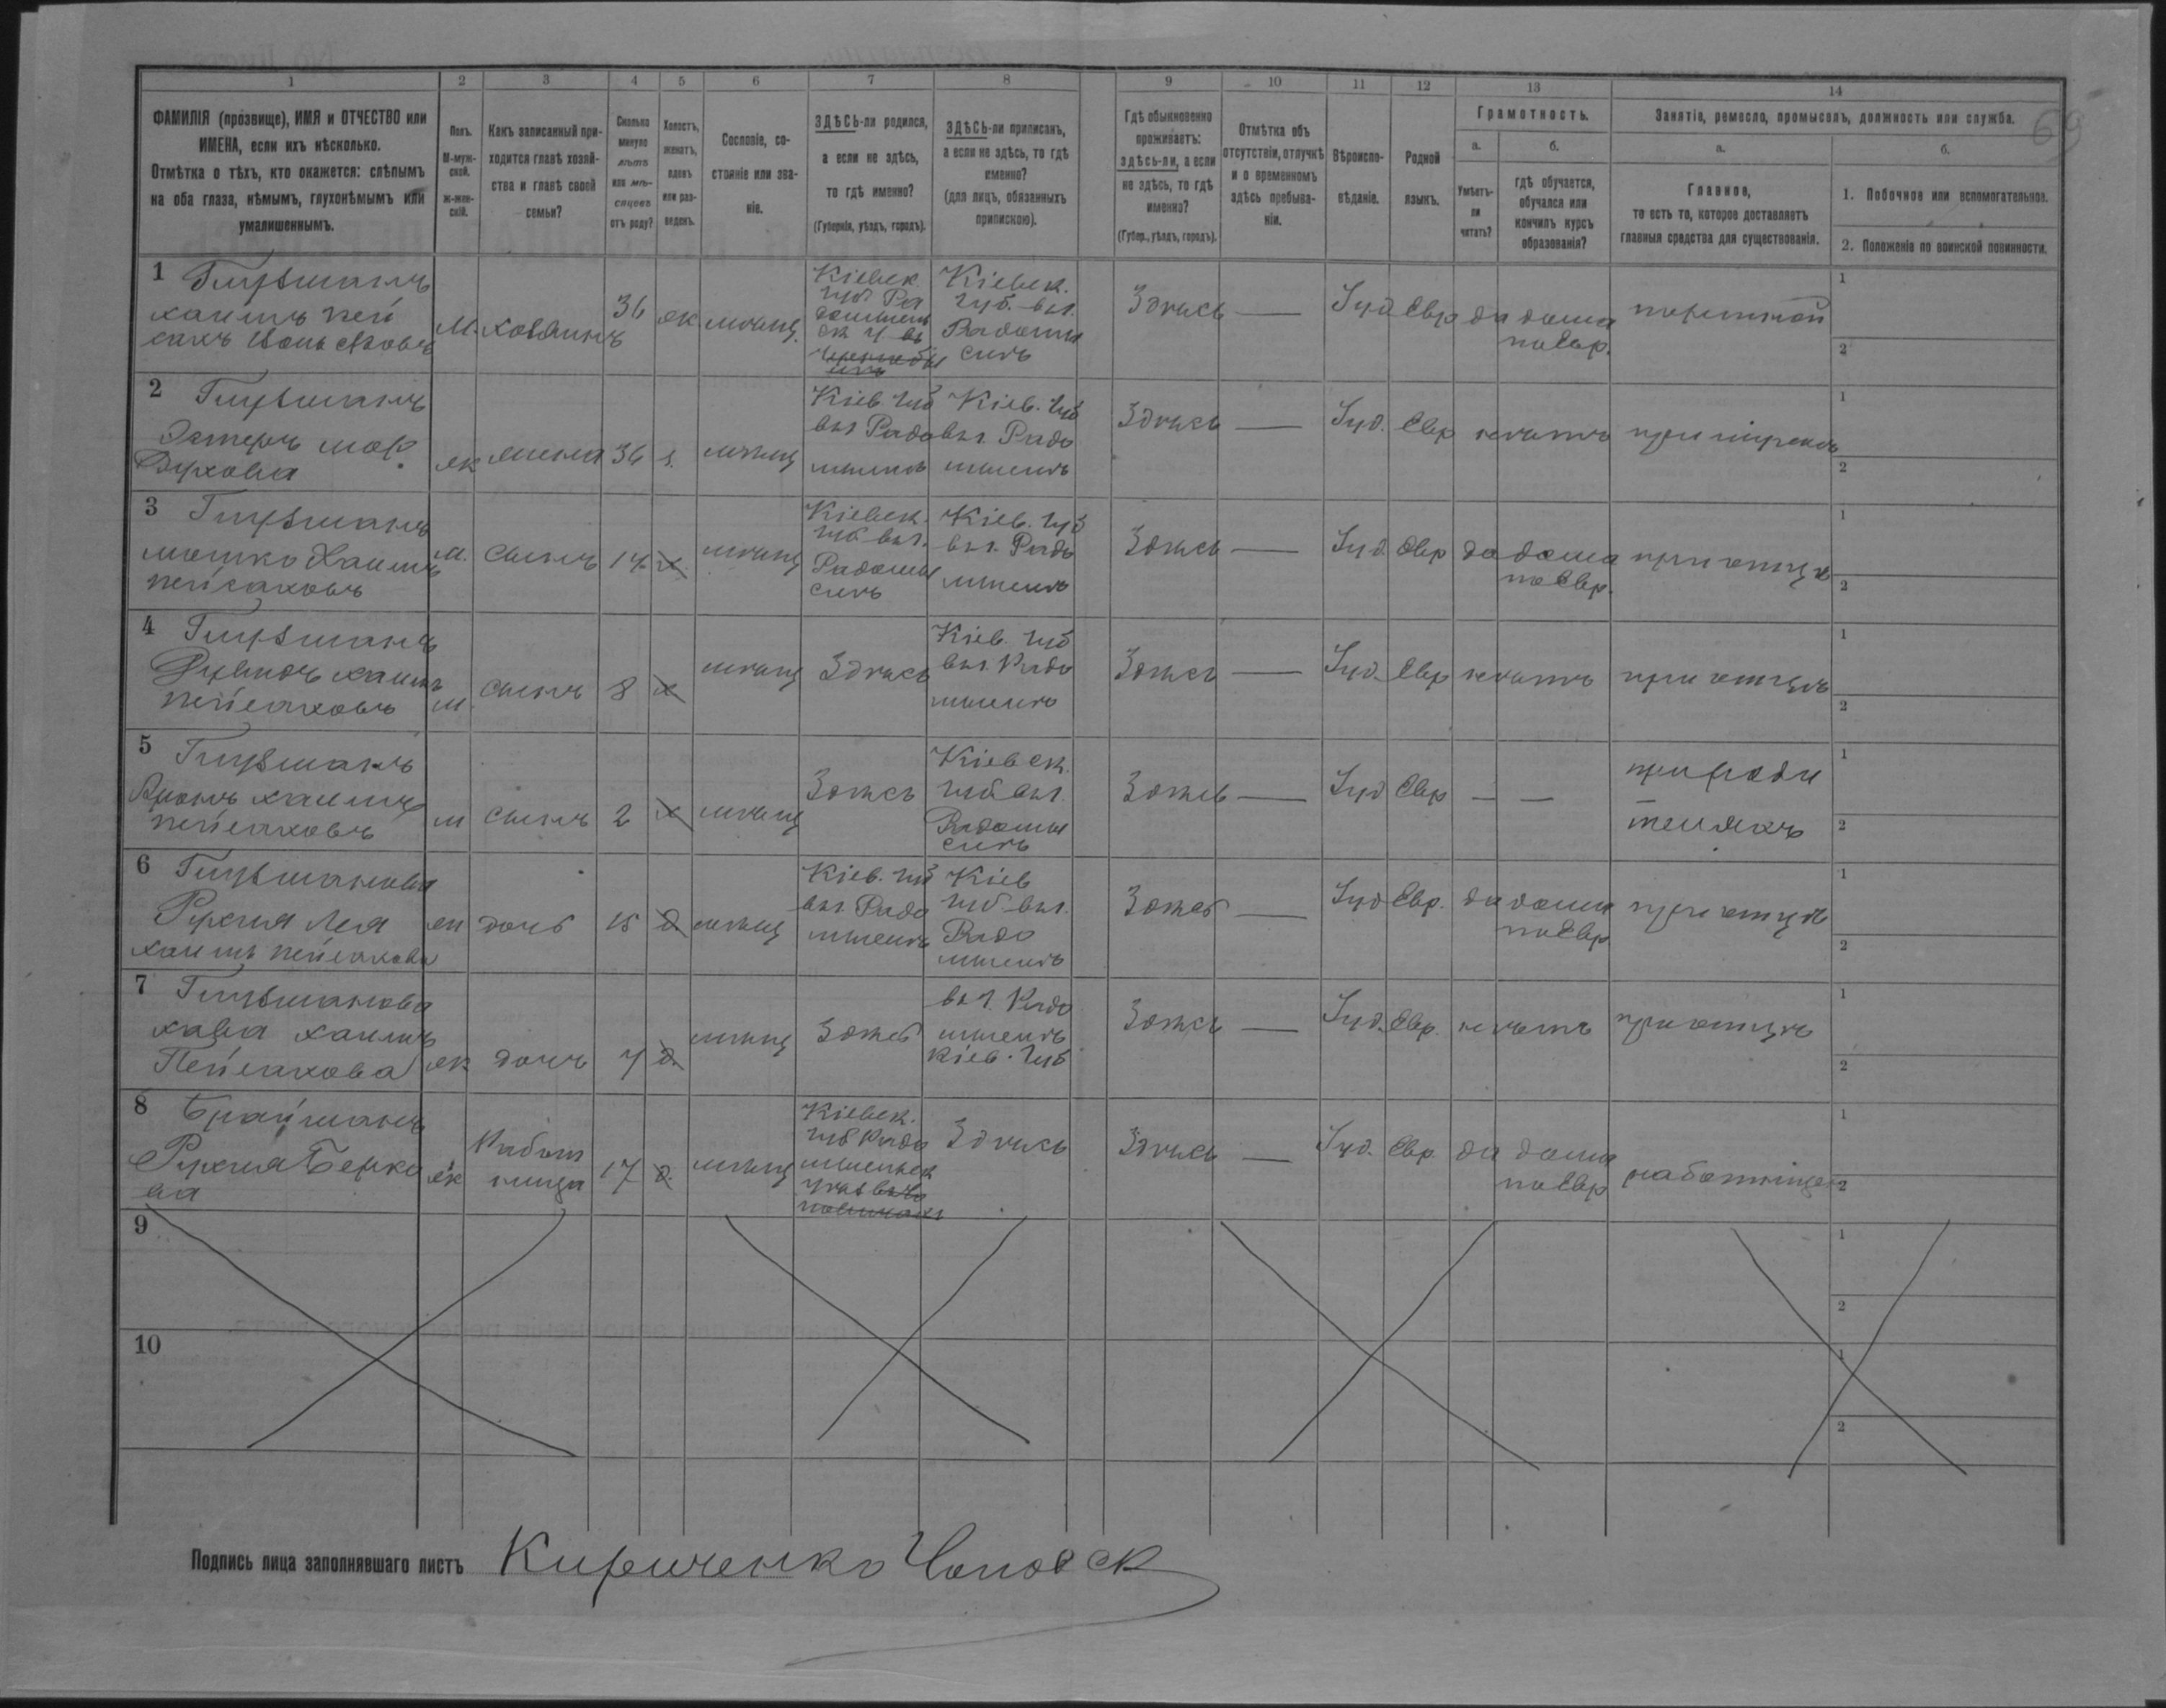 69
1 2 3 4 5 6 7 8 9 10 11 12 13 14
ФАМИЛІЯ (прозвище), ИМЯ и ОТЧЕСТВО или
ИМЕНА, если ихъ нѣсколько.
Отмѣтка о тѣхъ, кто окажется: слѣпымъ
на оба глаза, нѣмымъ, глухонѣмымъ или
умалишеннымъ.
Полъ.
М-муж-
ской.
Ж-жен-
скій.
Какъ записанный при-
ходится главѣ хозяй-
ства и главѣ своей
семьи?
Сколько
минуло
лѣтъ
или мѣ-
сяцевъ
отъ роду?
Холостъ,
женатъ,
вдовъ
или раз-
веденъ.
Сословіе, со-
стояніе или зва-
ніе.
ЗДѢСЬ-ли родился,
а если не здѣсь,
то гдѣ именно?
(Губернія, уѣздъ, городъ).
ЗДѢСЬ-ли приписанъ,
а если не здѣсь, то гдѣ
именно?
(для лицъ, обязанныхъ
припискою).
Гдѣ обыкновенно
проживаетъ:
здѣсь-ли, а если
не здѣсь, то гдѣ
именно?
(Губер., уѣздъ, городъ).
Отмѣтка объ
отсутствіи, отлучкѣ
и о временномъ
здѣсь пребыва-
ніи.
Вѣроиспо-
вѣданіе.
Родной
языкъ.
Грамотность.
а.
Умѣетъ-
ли
читать?
б.
гдѣ обучается,
обучался или
кончилъ курсъ
образованія?
Занятіе, ремесло, промыселъ, должность или служба.
а.
Главное,
то есть то, которое доставляетъ
главныя средства для существованія.
б.
1. Побочное или вспомогательное.
2. Положеніе по воинской повинности.
1
хаимъ пей
сахъ
м. хозяинъ 36 ж мѣщ.
Кіевск.
губ Ра
домышль
ск у. въ
Кіевск.
губ. въ г.
Радомы
слѣ
Здѣсь —
Іуд Евр да дома
по Евр.
портной
1
2
2
Эстеръ
ж жена 36 з. мѣщ
Кіев губ
въ г Радо
мыслѣ
Кіев. губ
въ г. Радо
мыслѣ
Здѣсь — Іуд. Евр нѣтъ
1
2
3
мошко Хаимъ
пейсаховъ
м. сынъ 14 х мѣщ
Кіевск.
губ въ г.
Радомы
слѣ
Кіев. губ
въ г. Радо
мыслѣ
Здѣсь — Іуд. Евр да дома
по Евр.
при отцѣ
1
2
4
хаимъ
пейсаховъ
м. сынъ 8 х мѣщ Здѣсь
Кіев. губ
въ г. Радо
мыслѣ
Здѣсь — Іуд. Евр нѣтъ при отцѣ
1
2
5
Аронъ хаимъ
пейсаховъ
м сынъ 2 х мѣщ Здѣсь
Кіевск.
губ въ г.
Радомы
слѣ
Здѣсь — Іуд Евр — —
при роди
теляхъ
1
2
6
Рухля Лея
хаимъ пейсахова
ж дочь 15 д мѣщ
Кіев. губ
въ г Радо
мыслѣ
Кіев
губ въ г.
Радо
мыслѣ
Здѣсь — Іуд Евр. да дома
по Евр
при отцѣ
1
2
7
хава хаимъ
Пейсахова
ж дочь 7 д. мѣщ Здѣсь
въ г. Радо
мыслѣ
Кіев. губ
Здѣсь — Іуд. Евр. нѣтъ при отцѣ
1
2
8 Брайманъ
Рухля Берко
ва
ж
Работ
ница
17 д. мѣщ
Кіевск.
губ Радо
мысльск
Здѣсь Здѣсь — Іуд. Евр. да дома
по Евр
работница
1
2
9
1
2
10
1
2
Подпись лица заполнявшаго листъ Кириченко